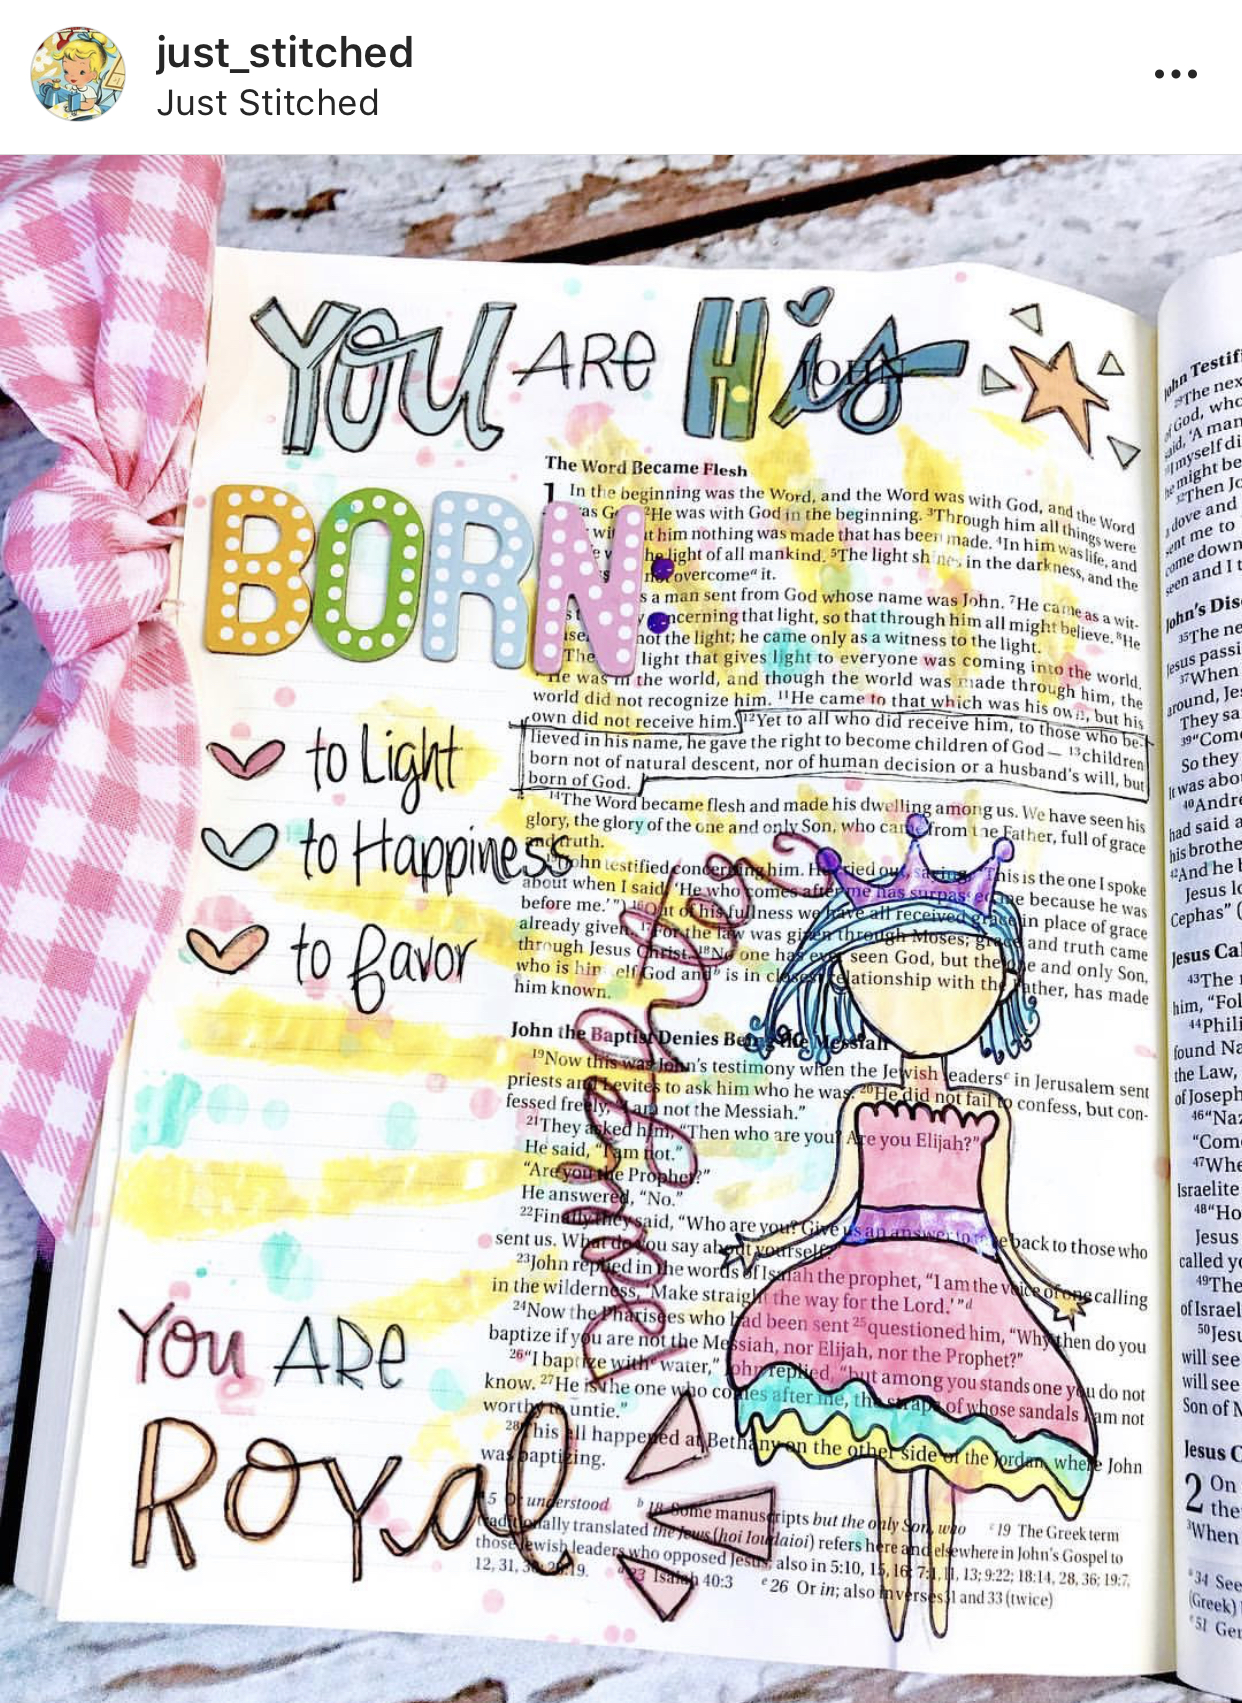 just_stitched
Just Stitched
YOU ARE His
JOHN
BORN:
to Light
to Happiness
to favor
You ARe
Royal
Daughter
The Word Became Flesh
1 In the beginning was the Word, and the Word was with God, and the Word
was God. ²He was with God in the beginning. ³Through him all things were
it him nothing was made that has been made. ⁴In him was life, and
he light of all mankind. ⁵The light shines in the darkness, and the
not overcomeᵃ it.
s a man sent from God whose name was John. ⁷He came as a wit-
concerning that light, so that through him all might believe. ⁸He
not the light; he came only as a witness to the light.
The light that gives light to everyone was coming into the world.
He was in the world, and though the world was made through him, the
world did not recognize him. ¹¹He came to that which was his own, but his
own did not receive him. ¹²Yet to all who did receive him, to those who be-
lieved in his name, he gave the right to become children of God— ¹³children
born not of natural descent, nor of human decision or a husband's will, but
born of God.
¹⁴The Word became flesh and made his dwelling among us. We have seen his
glory, the glory of the one and only Son, who came from the Father, full of grace
and truth.
John testified concerning him. He cried out, saying, "This is the one I spoke
about when I said, 'He who comes after me has surpassed me because he was
before me.'") ¹⁶Out of his fullness we have all received grace in place of grace
already given. ¹⁷For the law was given through Moses; grace and truth came
through Jesus Christ. ¹⁸No one has ever seen God, but the one and only Son,
who is himself God andᵇ is in closest relationship with the Father, has made
him known.
John the Baptist Denies Being the Messiah
¹⁹Now this was John's testimony when the Jewish leadersᶜ in Jerusalem sent
priests and Levites to ask him who he was. ²⁰He did not fail to confess, but con-
fessed freely, "I am not the Messiah."
²¹They asked him, "Then who are you? Are you Elijah?"
He said, "I am not."
"Are you the Prophet?"
He answered, "No."
²²Finally they said, "Who are you? Give us an answer to take back to those who
sent us. What do you say about yourself?"
²³John replied in the words of Isaiah the prophet, "I am the voice of one calling
in the wilderness, 'Make straight the way for the Lord.'"ᵈ
²⁴Now the Pharisees who had been sent ²⁵questioned him, "Why then do you
baptize if you are not the Messiah, nor Elijah, nor the Prophet?"
²⁶"I baptize withᵉ water," John replied, "but among you stands one you do not
know. ²⁷He is the one who comes after me, the straps of whose sandals I am not
worthy to untie."
²⁸This all happened at Bethany on the other side of the Jordan, where John
was baptizing.
ᵃ5 Or understood ᵇ18 Some manuscripts but the only Son, who ᶜ19 The Greek term
traditionally translated the Jews (hoi Ioudaioi) refers here and elsewhere in John's Gospel to
those Jewish leaders who opposed Jesus; also in 5:10, 15, 16; 7:1, 11, 13; 9:22; 18:14, 28, 36; 19:7,
12, 31, 38; 20:19. ᵈ23 Isaiah 40:3 ᵉ26 Or in; also in verses 31 and 33 (twice)
John Testifi
²⁹The nex
of God, who
said, 'A man
myself di
he might be
³²Then Jo
dove and
sent me to
come down
seen and I t
John's Dis
³⁵The ne
Jesus passi
³⁷When
around, Je
They sa
³⁹"Com
So they
It was abou
⁴⁰Andre
had said a
his brothe
⁴²And he b
Jesus lo
Cephas" (
Jesus Cal
⁴³The n
him, "Fol
⁴⁴Phili
found Na
the Law,
of Joseph
⁴⁶"Naz
"Com
⁴⁷Whe
Israelite
⁴⁸"Ho
Jesus
called yo
⁴⁹The
of Israel
⁵⁰Jesu
will see
will see
Son of M
Jesus C
2 On
the
³When
ᵃ34 See
(Greek)
ᶜ51 Gen